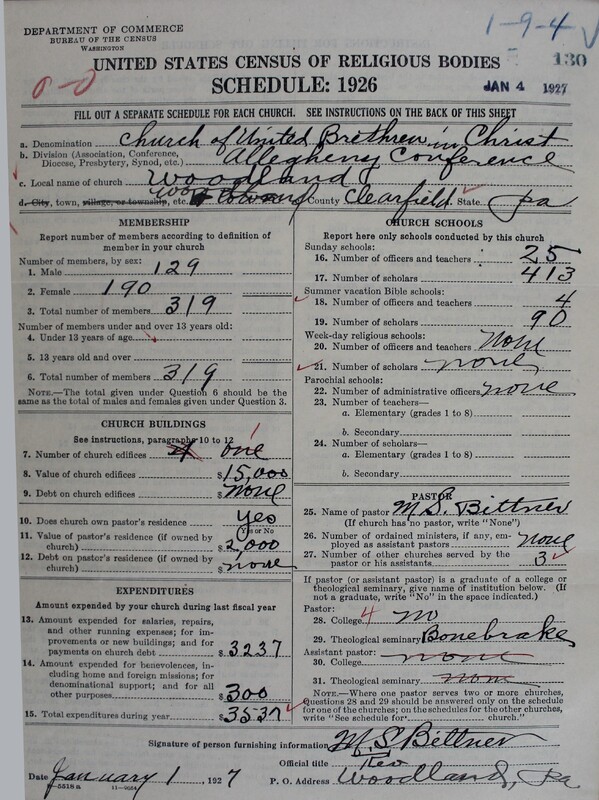 DEPARTMENT OF COMMERCE
BUREAU OF THE CENSUS
WASHINGTON
1-9-4
130
UNITED STATES CENSUS OF RELIGIOUS BODIES
SCHEDULE: 1926
JAN 4 1927
FILL OUT A SEPARATE SCHEDULE FOR EACH CHURCH. SEE INSTRUCTIONS ON THE BACK OF THIS SHEET
a. Denomination Church of United Brethren in Christ
b. Division (Association, Conference, Diocese, Presbytery, Synod, etc.) Allegheny Conference
c. Local name of church Woodland
d. City, town, village, or township, etc. County Clearfield State Pa
MEMBERSHIP
Report number of members according to definition of member in your church
Number of members, by sex:
1. Male 129
2. Female 190
3. Total number of members 319
Number of members under and over 13 years old:
4. Under 13 years of age
5. 13 years old and over
6. Total number of members 319
NOTE.—The total given under Question 6 should be the same as the total of males and females given under Question 3.
CHURCH BUILDINGS
See instructions, paragraphs 10 to 12
7. Number of church edifices one
8. Value of church edifices $15,000
9. Debt on church edifices $none
10. Does church own pastor's residence Yes
Yes or No
11. Value of pastor's residence (if owned by church) $2,000
12. Debt on pastor's residence (if owned by church) $none
EXPENDITURES
Amount expended by your church during last fiscal year
13. Amount expended for salaries, repairs, and other running expenses; for improvements or new buildings; and for payments on church debt $3237
14. Amount expended for benevolences, including home and foreign missions; for denominational support; and for all other purposes $300
15. Total expenditures during year $3537
CHURCH SCHOOLS
Report here only schools conducted by this church
Sunday schools:
16. Number of officers and teachers 25
17. Number of scholars 413
Summer vacation Bible schools:
18. Number of officers and teachers 4
19. Number of scholars 90
Week-day religious schools:
20. Number of officers and teachers none
21. Number of scholars none
Parochial schools:
22. Number of administrative officers none
23. Number of teachers—
a. Elementary (grades 1 to 8)
b. Secondary
24. Number of scholars—
a. Elementary (grades 1 to 8)
b. Secondary
PASTOR
25. Name of pastor M.S. Bittner
(If church has no pastor, write "None")
26. Number of ordained ministers, if any, employed as assistant pastors none
27. Number of other churches served by the pastor or his assistants 3
If pastor (or assistant pastor) is a graduate of a college or theological seminary, give name of institution below. (If not a graduate, write "No" in the space indicated.)
Pastor:
28. College 4 no
29. Theological seminary Bonebrake
Assistant pastor:
30. College none
31. Theological seminary none
NOTE.—Where one pastor serves two or more churches, Questions 28 and 29 should be answered only on the schedule for one of the churches; on the schedules for the other churches, write "See schedule for church."
Signature of person furnishing information M.S. Bittner
Official title Rev
Date January 1, 1927 P. O. Address Woodland, Pa